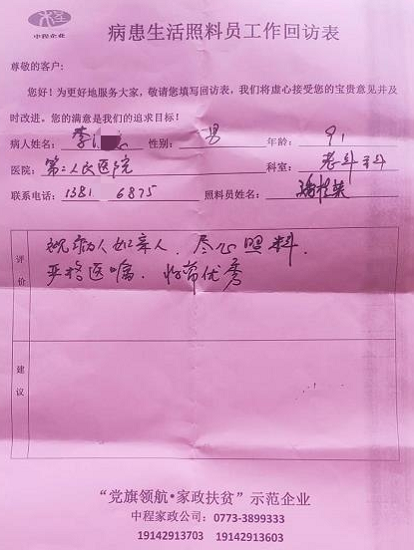 中程企业
病患生活照料员工作回访表
尊敬的客户:
您好!为更好地服务大家,敬请您填写回访表,我们将虚心接受您的宝贵意见并及
时改进,您的满意是我们的追求目标!
病人姓名: 李 性别: 男 年龄: 91
医院: 第二人民医院 科室: 老年科
联系电话: 1381 6875 照料员姓名:
评价
视病人如亲人、尽心照料、
严格医嘱、非常优秀
建议
“党旗领航•家政扶贫”示范企业
中程家政公司: 0773-3899333
19142913703 19142913603